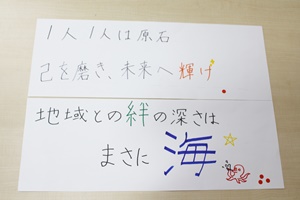 1人1人は原石
己を磨き、未来へ輝け
地域との絆の深さは
まさに海